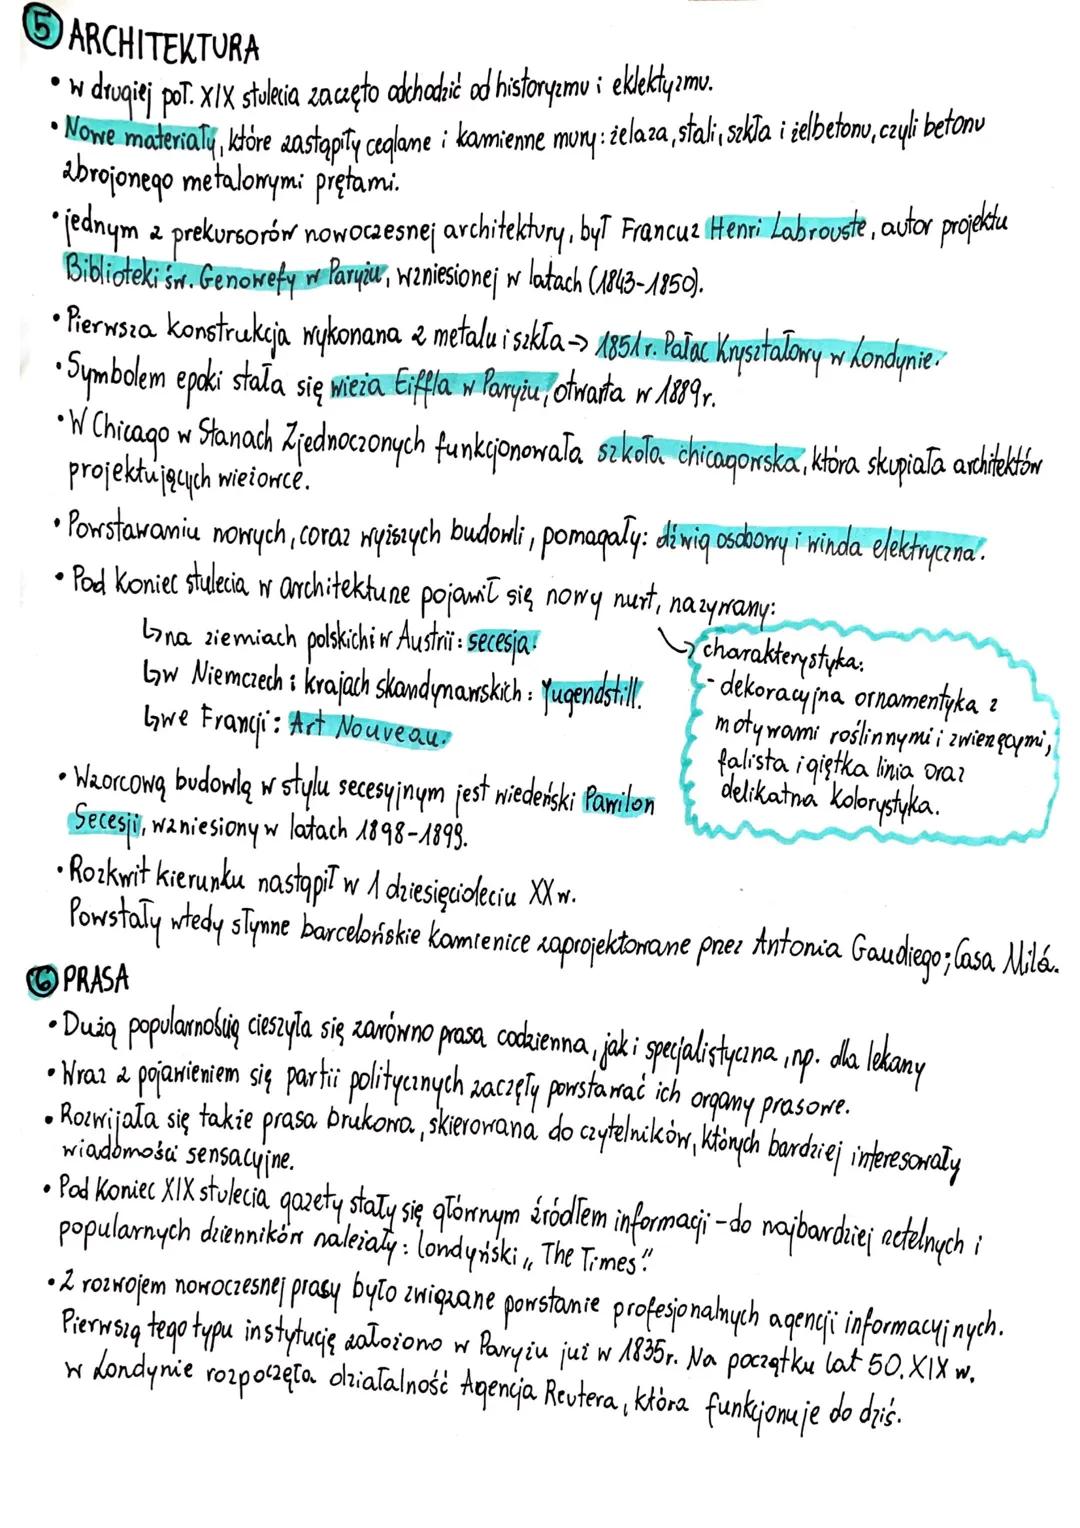 5 ARCHITEKTURA
• w drugiej poł. XIX stulecia zaczęto odchodzić od historyzmu i eklektyzmu.
• Nowe materiały, które zastąpiły ceglane i kamienne mury: żelaza, stali, szkła i żelbetonu, czyli betonu
zbrojonego metalowymi prętami.
• jednym z prekursorów nowoczesnej architektury, był Francuz Henri Labrouste, autor projektu
Biblioteki św. Genowefy w Paryżu, wzniesionej w latach (1843-1850).
• Pierwsza konstrukcja wykonana z metalu i szkła → 1851r. Pałac Kryształowy w Londynie.
• Symbolem epoki stała się wieża Eiffla w Paryżu, otwarta w 1889r.
• W Chicago w Stanach Zjednoczonych funkcjonowała szkoła chicagowska, która skupiała architektów
projektujących wieżowce.
• Powstawaniu nowych, coraz wyższych budowli, pomagały: dźwig osobowy i winda elektryczna.
• Pod koniec stulecia w architekturze pojawił się nowy nurt, nazywany:
↳ na ziemiach polskich i w Austrii: secesja.
↳ w Niemczech i krajach skandynawskich: Jugendstill.
↳ we Francji: Art Nouveau.
→ charakterystyka:
- dekoracyjna ornamentyka z
motywami roślinnymi i zwierzęcymi,
falista i giętka linia oraz
delikatna kolorystyka.
• Wzorcową budowlą w stylu secesyjnym jest wiedeński Pawilon
Secesji, wzniesiony w latach 1898-1899.
• Rozkwit kierunku nastąpił w 1 dziesięcioleciu XX w.
Powstały wtedy słynne barcelońskie kamienice zaprojektowane przez Antonia Gaudiego; Casa Milá.
6 PRASA
• Dużą popularnością cieszyła się zarówno prasa codzienna, jak i specjalistyczna, np. dla lekarzy
• Wraz z pojawieniem się partii politycznych zaczęły powstawać ich organy prasowe.
• Rozwijała się także prasa brukowa, skierowana do czytelników, których bardziej interesowały
wiadomości sensacyjne.
• Pod koniec XIX stulecia gazety stały się głównym źródłem informacji - do najbardziej rzetelnych i
popularnych dzienników należały: londyński „The Times".
• Z rozwojem nowoczesnej prasy było związane powstanie profesjonalnych agencji informacyjnych.
Pierwszą tego typu instytucję założono w Paryżu już w 1835r. Na początku lat 50. XIX w.
w Londynie rozpoczęła działalność Agencja Reutera, która funkcjonuje do dziś.